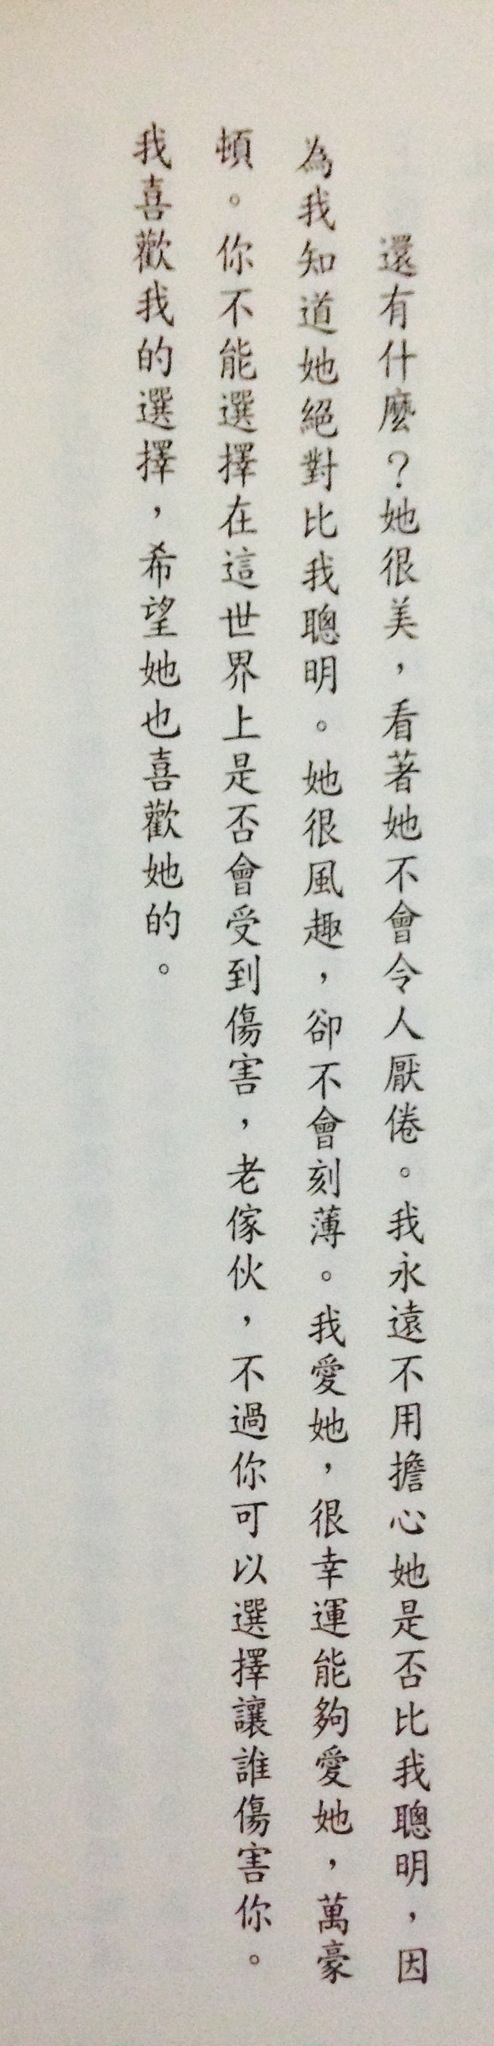 還有什麼？她很美，看著她不會令人厭倦。我永遠不用擔心她是否比我聰明，因
為我知道她絕對比我聰明。她很風趣，卻不會刻薄。我愛她，很幸運能夠愛她，萬豪
頓。你不能選擇在這世界上是否會受到傷害，老傢伙，不過你可以選擇讓誰傷害你。
我喜歡我的選擇，希望她也喜歡她的。